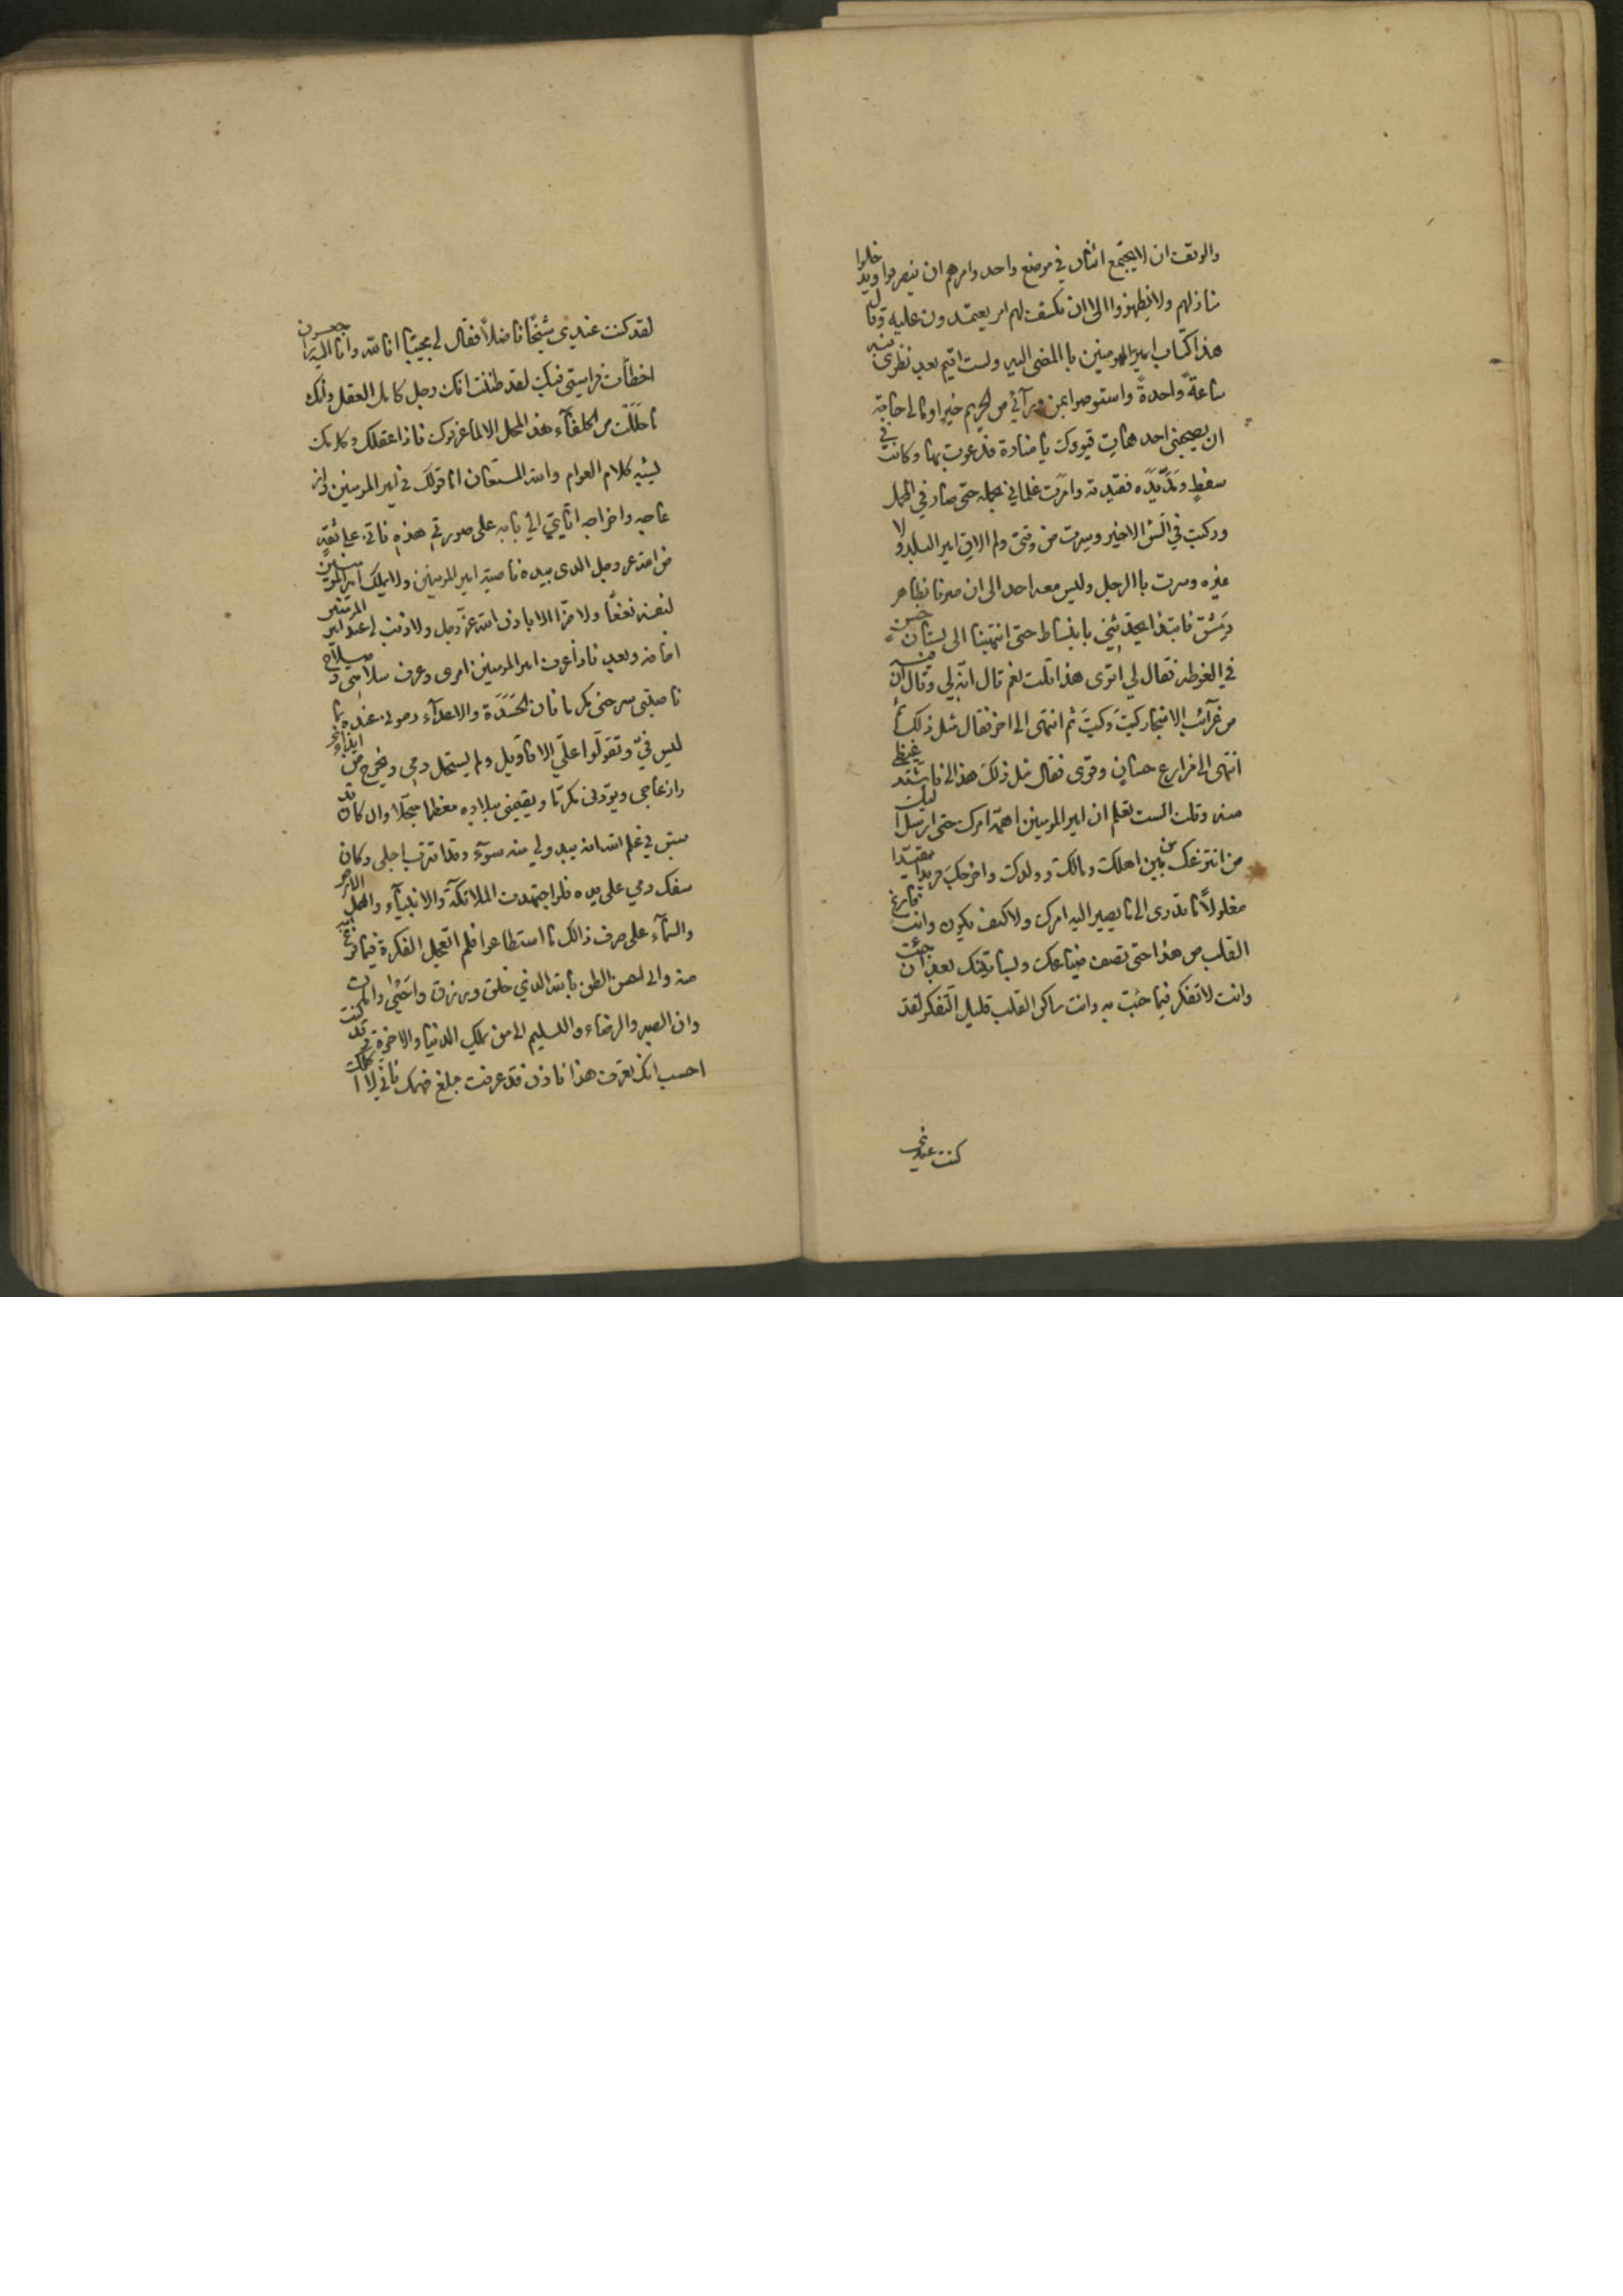 والوقف ان لا يجتمع اثنان في موضع واحد وامرهم ان ينصرفوا ويدخلوا
منازلهم ولا يظهروا الى ان يكشف لهم امر يعتمدون عليه وقال
هذا كتاب امير المومنين با المضى اليه ولست اقيم بعد نظرى فيه
ساعةً واحدةً واستوصوا بمن ورآئي من الحريم خيرا ومالى حاجة
ان يصحبنى احد هات قيودك يا منارة فدعوت بها وكانت في
سفطٍ ومَدّ يدَه فقيدته وامَرت غلماني بحمله حتى صار في المحمل
وركبت في الشق الاخير وسرت من وقتى ولم الاقِ امير البلد ولا
غيره وسرت با الرجل وليس معه احد الى ان صرنا بظاهر
دمشق فابتدا يحدثني بانبساط حتى انتهينا الى بستان حسن
في الغوطه فقال لي اترى هذا قلت نعم قال انّه لي وقال ان فيه
من غرآئب الاشجار كيتَ وكيتَ ثم انتهى الى اخر فقال مثل ذلك ثم
انتهى الى مزارع حسانٍ وقرى فقال مثل ذلك هذا لي فاشتد غيظي
منه وقلت الست تعلم ان امير المومنين اهمّه امرك حتى ارسل اليك
من انتزعك من بين اهلك ومالك وولدك واخرجك فريدا مقيّدا
مغلولاً ما تدرى الى ما يصير اليه امرك ولا كيف يكون وانت فارغ
القلب من هذا حتى تصف ضياعك وبساتينك بعد ان جئت
وانت لا تفكر فيما جئت به وانت ساكن القلب قليل التفكر لقد
كنت عندي
لقد كنت عندى شيخًا فاضلاً فقال لى مجيبًا انا لله وانا اليه راجعون
اخطأت فراستى فيك لقد ظننت انك رجل كامل العقل وانك
ما حللت من الخلفآء هذا المحل الا لما عرفوك فاذا عقلك وكلامك
يشبه كلام العوام والله المستعان اما قولك في امير المومنين واز
عاجه واخراجه اياي الى بابه على صورتي هذه فاني على ثقةٍ
من الله عز وجل الذى بيده ناصية امير المومنين ولا يملك امير المومنين
لنفسه نفعًا ولا ضرّا الا باذن الله عز وجل ولا ذنب لى عند امير المومنين
اخافه وبعد فاذا عرف امير المومنين امرى وعرف سلامتى وصلاح
ناصيتى سرحنى مكرما فان الحَسَدَة والاعدآء رمونى عنده بما
ليس فيّ وتقوّلوا عليّ الاقاويل ولم يستحل دمي ويخرج من ايذائي
وازعاجى ويردنى مكرّما ويقيمنى ببلاده معظما مبجّلا وان كان قد
سبق في علم الله انه يبدو لي منه سوء وقد اقترب اجلى وكان
سفك دمي على يده فلو اجتهدت الملائكة والانبيآء واهل الارض
والسمآء على صرف ذالك ما استطاعوا فلم اتعجل الفكرة فيما فرغ الله
منه واني احسن الظن بالله الذي خلق ورزق واحيى وامات
وان الصبر والرضاء والتسليم الى من يملك الدنيا والاخرة قد كنت
احسب انك تعرف هذا فاذن قد عرفت مبلغ فهمك فاني لا اكلمك